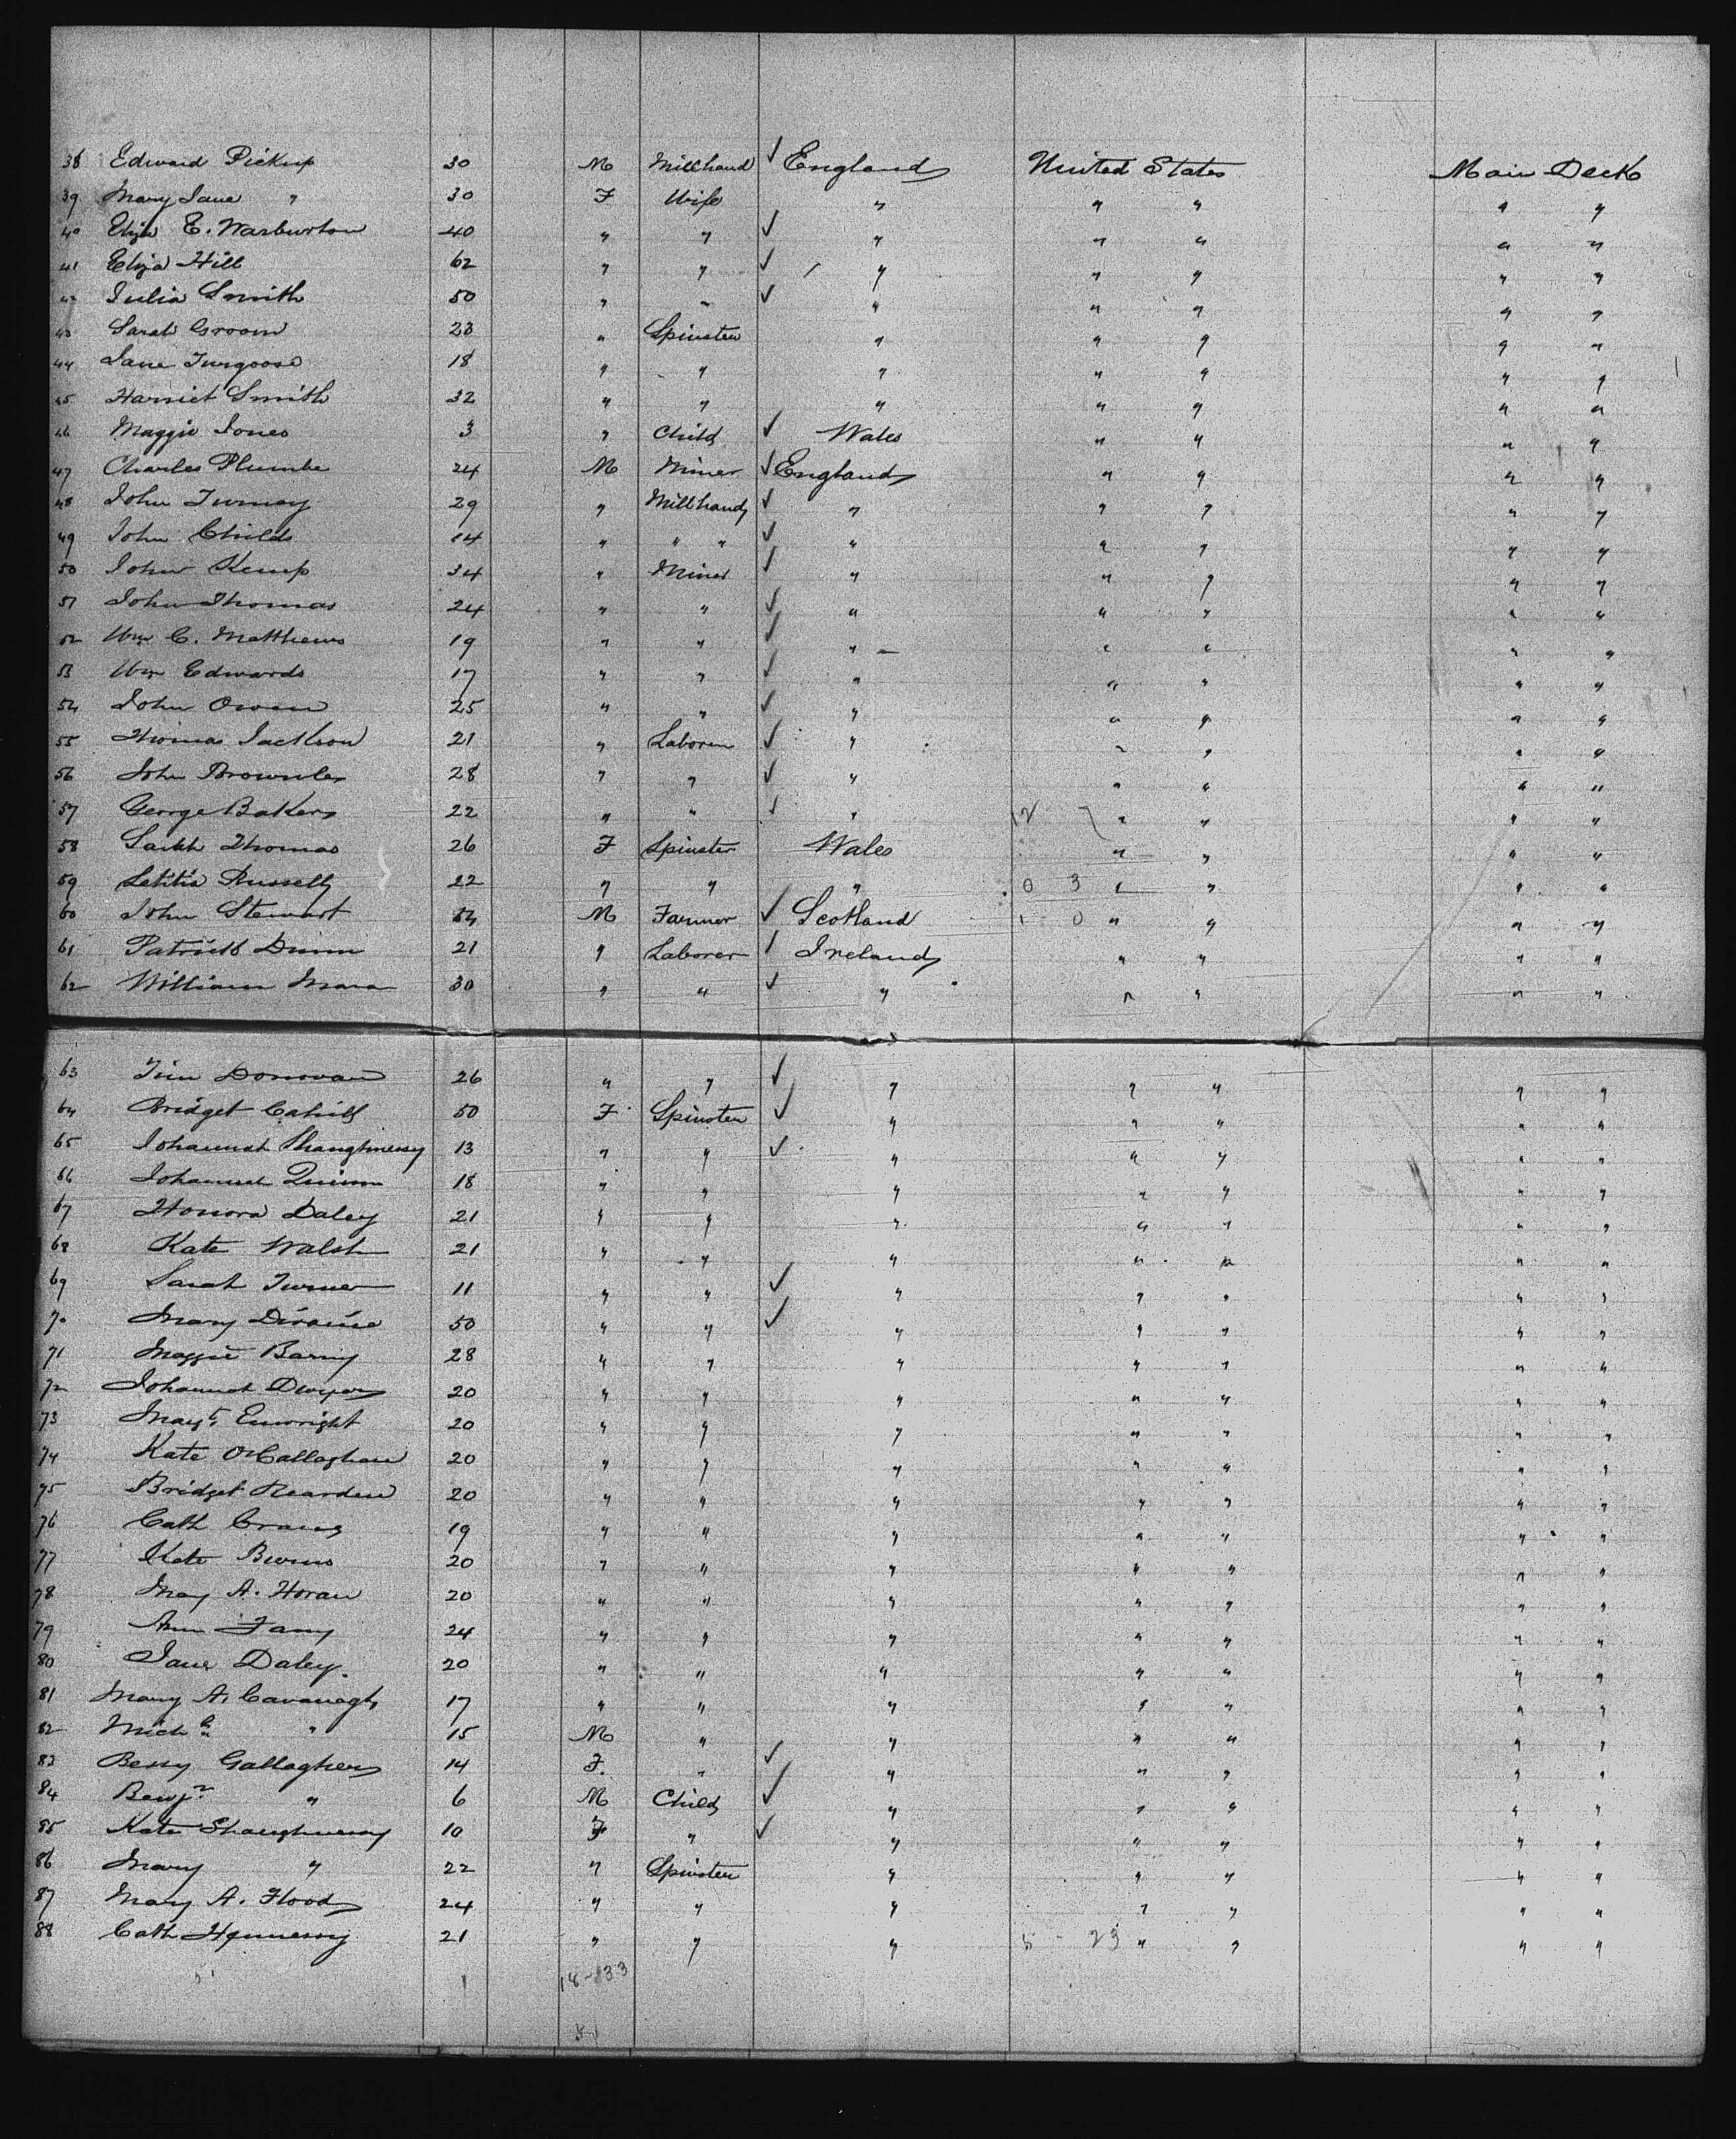 38 Edward Pickup 30 M Millhand ✓ England United States Main Deck
39 Mary Jane " 30 F Wife " " " " "
40 Eliza E. Warburton 40 " " ✓ " " " " "
41 Eliza Hill 62 " " ✓ " " " " "
42 Julia Smith 50 " " ✓ " " " " "
43 Sarah Groom 23 " Spinster " " " " "
44 Jane Turgoose 18 " " " " " " "
45 Harriet Smith 32 " " " " " " "
46 Maggie Jones 3 " Child ✓ Wales " " " "
47 Charles Plumbe 24 M Miner ✓ England " " " "
48 John Turney 29 " Millhand ✓ " " " " "
49 John Childs 14 " " " ✓ " " " " "
50 John Kemp 34 " Miner ✓ " " " " "
51 John Thomas 24 " " ✓ " " " " "
52 Wm C. Matthews 19 " " ✓ " " " " "
53 Wm Edwards 17 " " ✓ " " " " "
54 John Owen 25 " " ✓ " " " " "
55 Thomas Jackson 21 " Laborer ✓ " " " " "
56 John Brownley 28 " " ✓ " " " " "
57 George Bakers 22 " " ✓ " 12 7 " " " "
58 Sarah Thomas 26 F Spinster Wales " " " "
59 Letitia Russell 22 " " " 0 3 " " " "
60 John Stewart 54 M Farmer ✓ Scotland 1 0 " " " "
61 Patrick Dunn 21 " Laborer ✓ Ireland " " " "
62 William Mara 30 " " ✓ " " " " "
63 Tim Donovan 26 " " ✓ " " " " "
64 Bridget Cahill 50 F Spinster ✓ " " " " "
65 Johannah Shaughnessy 13 " " ✓ " " " " "
66 Johannah Quinn 18 " " " " " " "
67 Honora Daley 21 " " " " " " "
68 Kate Walsh 21 " " " " " " "
69 Sarah Turner 11 " " ✓ " " " " "
70 Mary 50 " " ✓ " " " " "
71 Maggie Barry 28 " " " " " " "
72 Johannah Dwyer 20 " " " " " " "
73 Margt. Enwright 20 " " " " " " "
74 Kate O'Callaghan 20 " " " " " " "
75 Bridget Rearden 20 " " " " " " "
76 Cath 19 " " " " " " "
77 Kate Burns 20 " " " " " " "
78 May A. Horan 20 " " " " " " "
79 Ann Fany 24 " " " " " " "
80 Jane Daley. 20 " " " " " " "
81 Mary A. Cavanagh 17 " " " " " " "
82 Michl " 15 M " " " " " "
83 Bessy Gallagher 14 F. " ✓ " " " " "
84 Benjn " 6 M Child ✓ " " " " "
85 Kate Shaughnessy 10 F " ✓ " " " " "
86 Mary " 22 " Spinster " " " " "
87 Mary A. Flood 24 " " " " " " "
88 Cath Hennessy 21 " " " 5 - 23 " " " "
18-33
51